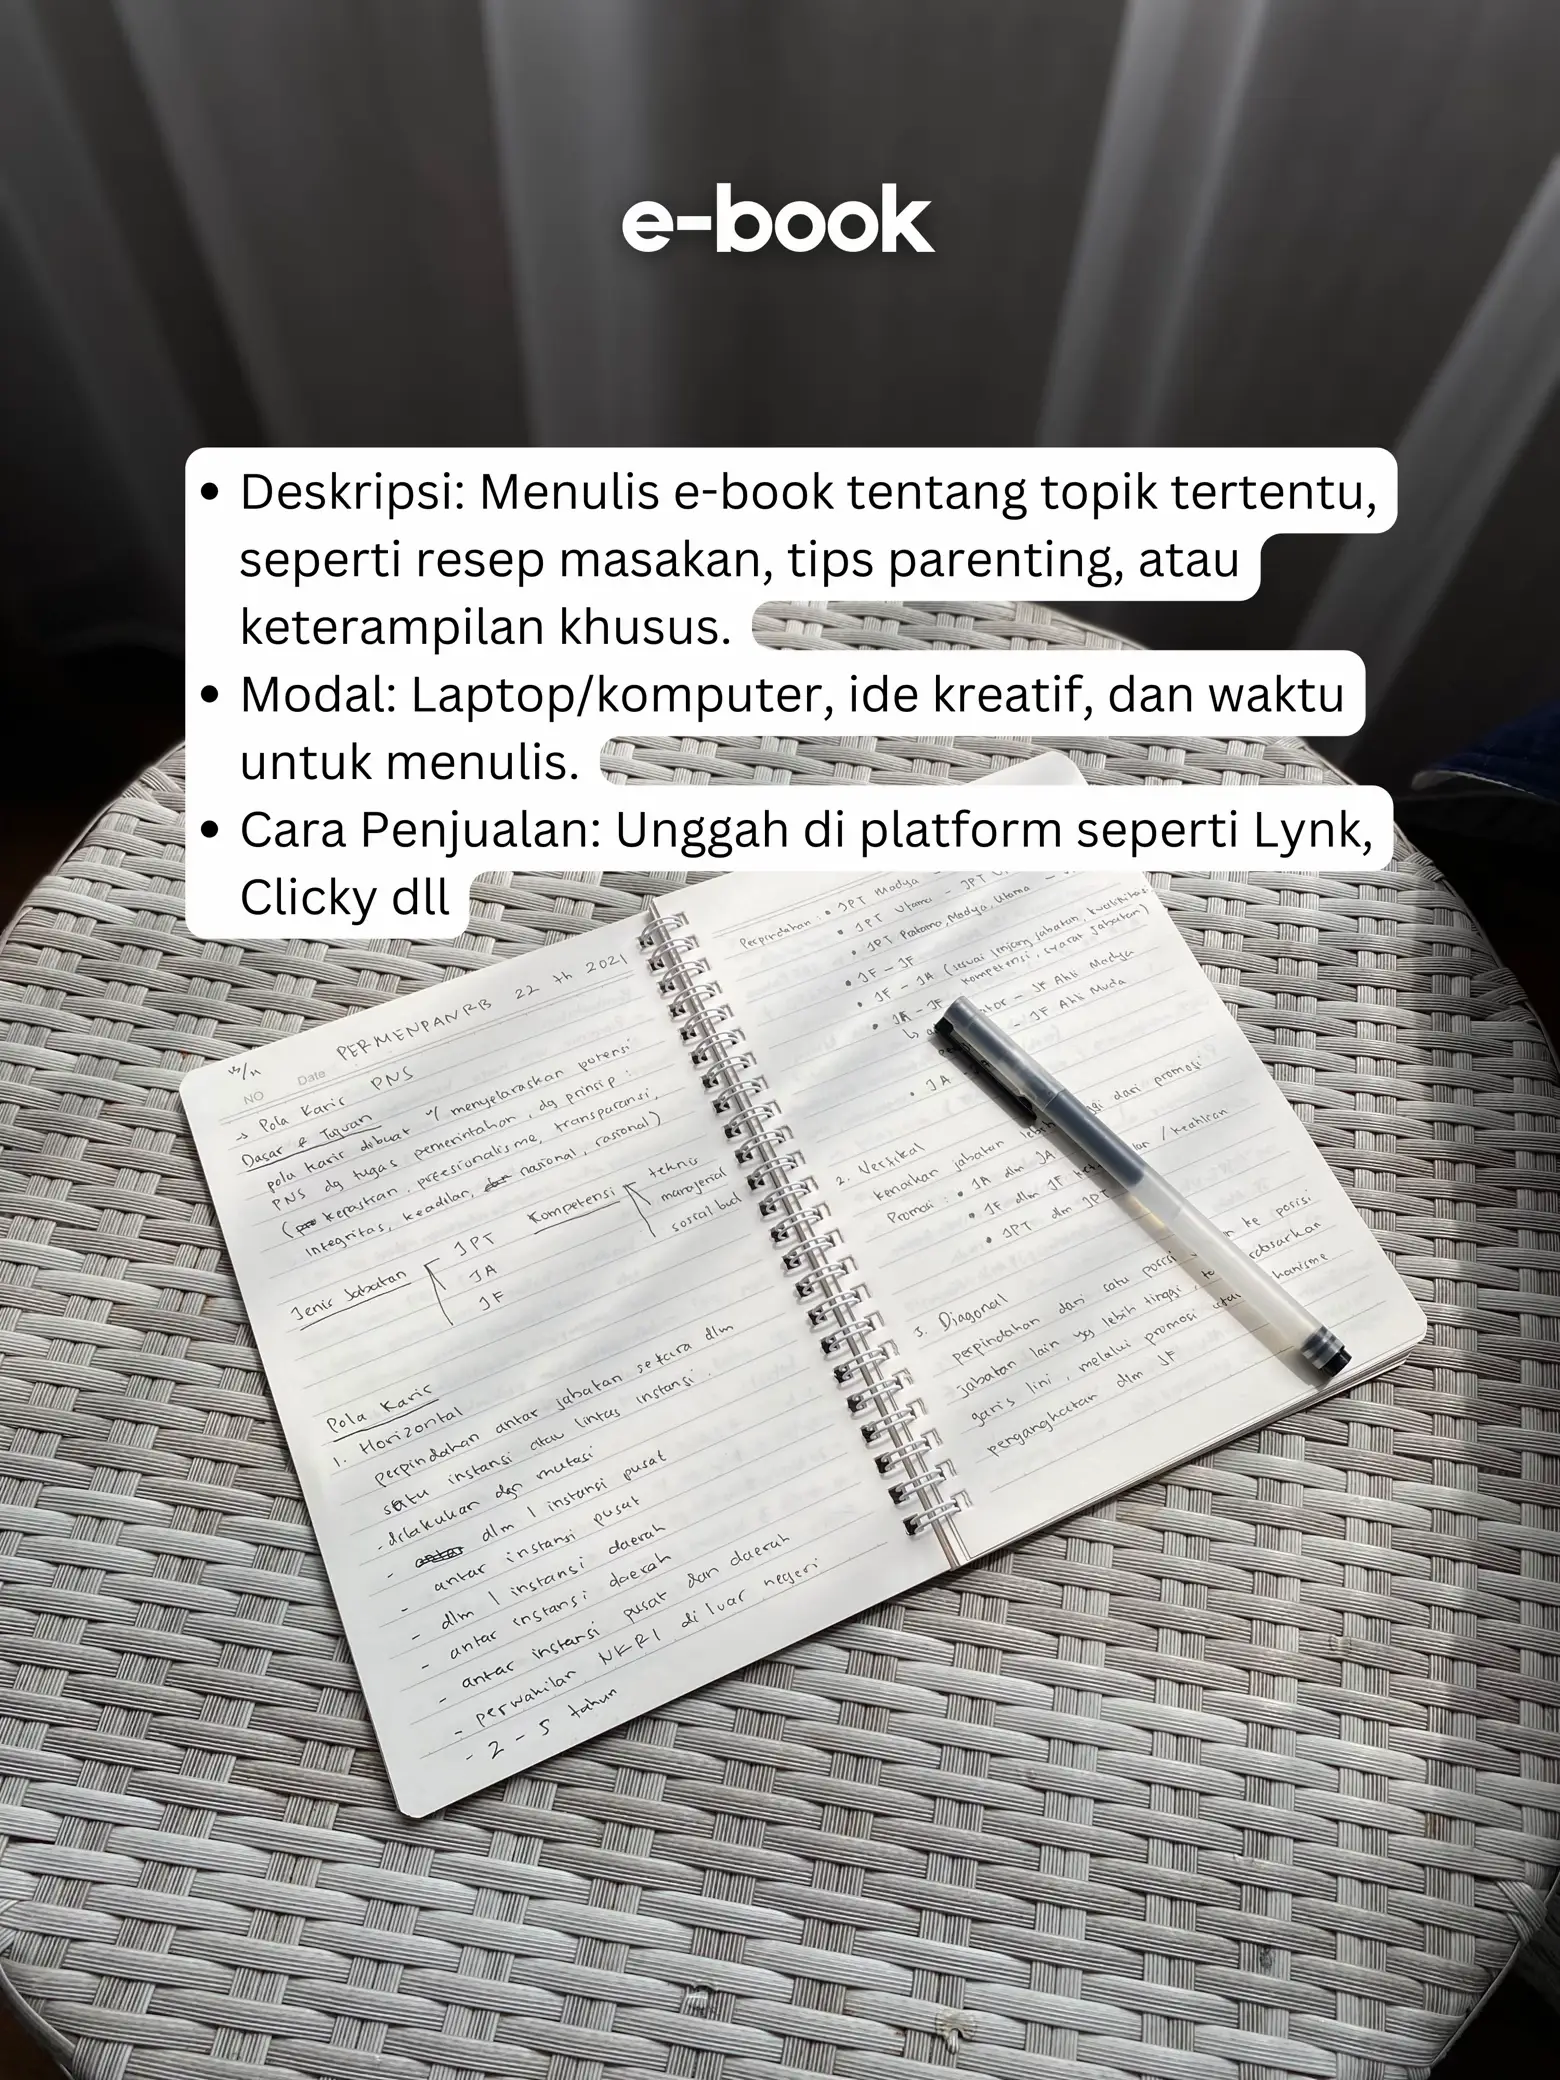 e-book
• Deskripsi: Menulis e-book tentang topik tertentu,
seperti resep masakan, tips parenting, atau
keterampilan khusus.
• Modal: Laptop/komputer, ide kreatif, dan waktu
untuk menulis.
• Cara Penjualan: Unggah di platform seperti Lynk,
Clicky dll
NO
Date
PERMENPANRB 22 th 2021
→ Pola Karir PNS
Dasar & Tujuan
pola karir dibuat u/ menyelaraskan potensi
PNS dg tugas pemerintahan, dg prinsip :
( kepastian, preesionalisme, transparansi,
integritas, keadilan, nasional, rasional)
Jenis Jabatan
JPT
JA
JF
Kompetensi
teknis
manajerial
sosial bud
Pola Karir
1. Horizontal
perpindahan antar jabatan setara dlm
satu instansi atau lintas instansi.
- dilakukan dgn mutasi
- dlm 1 instansi pusat
- antar instansi pusat
- dlm 1 instansi daerah
- antar instansi daerah
- antar instansi pusat dan daerah
- perwakilan NKRI di luar negeri
- 2 - 5 tahun
Perpindahan : • JPT Madya -
• JPT Utama - JPT
• JPT Pratama, Madya, Utama -
• JF - JF
• JF - JA (sesuai jenjang jabatan, kualifikasi
kompetensi, syarat jabatan)
• JA - JF
- JF Ahli Madya
- JF Ahli Muda
• JA -
2. Vertikal
kenaikan jabatan lebih dari promosi
Promosi : • JA dlm JA
• JF dlm JF / keahlian
• JPT dlm JPT
3. Diagonal
perpindahan dari satu posisi ke posisi
jabatan lain yg lebih tinggi,
garis lini, melalui promosi
pengangkatan dlm JF